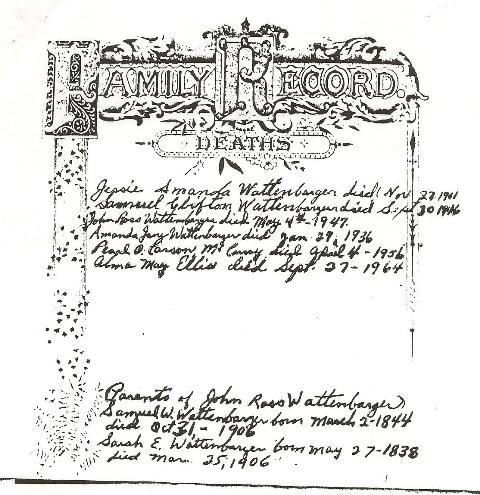 FAMILY RECORD.
DEATHS
Jessie Amanda Wattenbarger died Nov 27 1901
Samuel Clifton Wattenbarger died Sept 30 1946
John Ross Wattenbarger died May 4th - 1947.
Amanda Jany Wattenbarger died Jan. 29, 1936
Pearl O. Carson McCurry died April 4 - 1956
Alma May Ellis died Sept. 27 - 1964
Parents of John Ross Wattenbarger
Samuel W. Wattenbarger born March 2 - 1844
died Oct 31 - 1906
Sarah E. Wattenbarger born May 27 - 1838
died Mar. 25, 1906